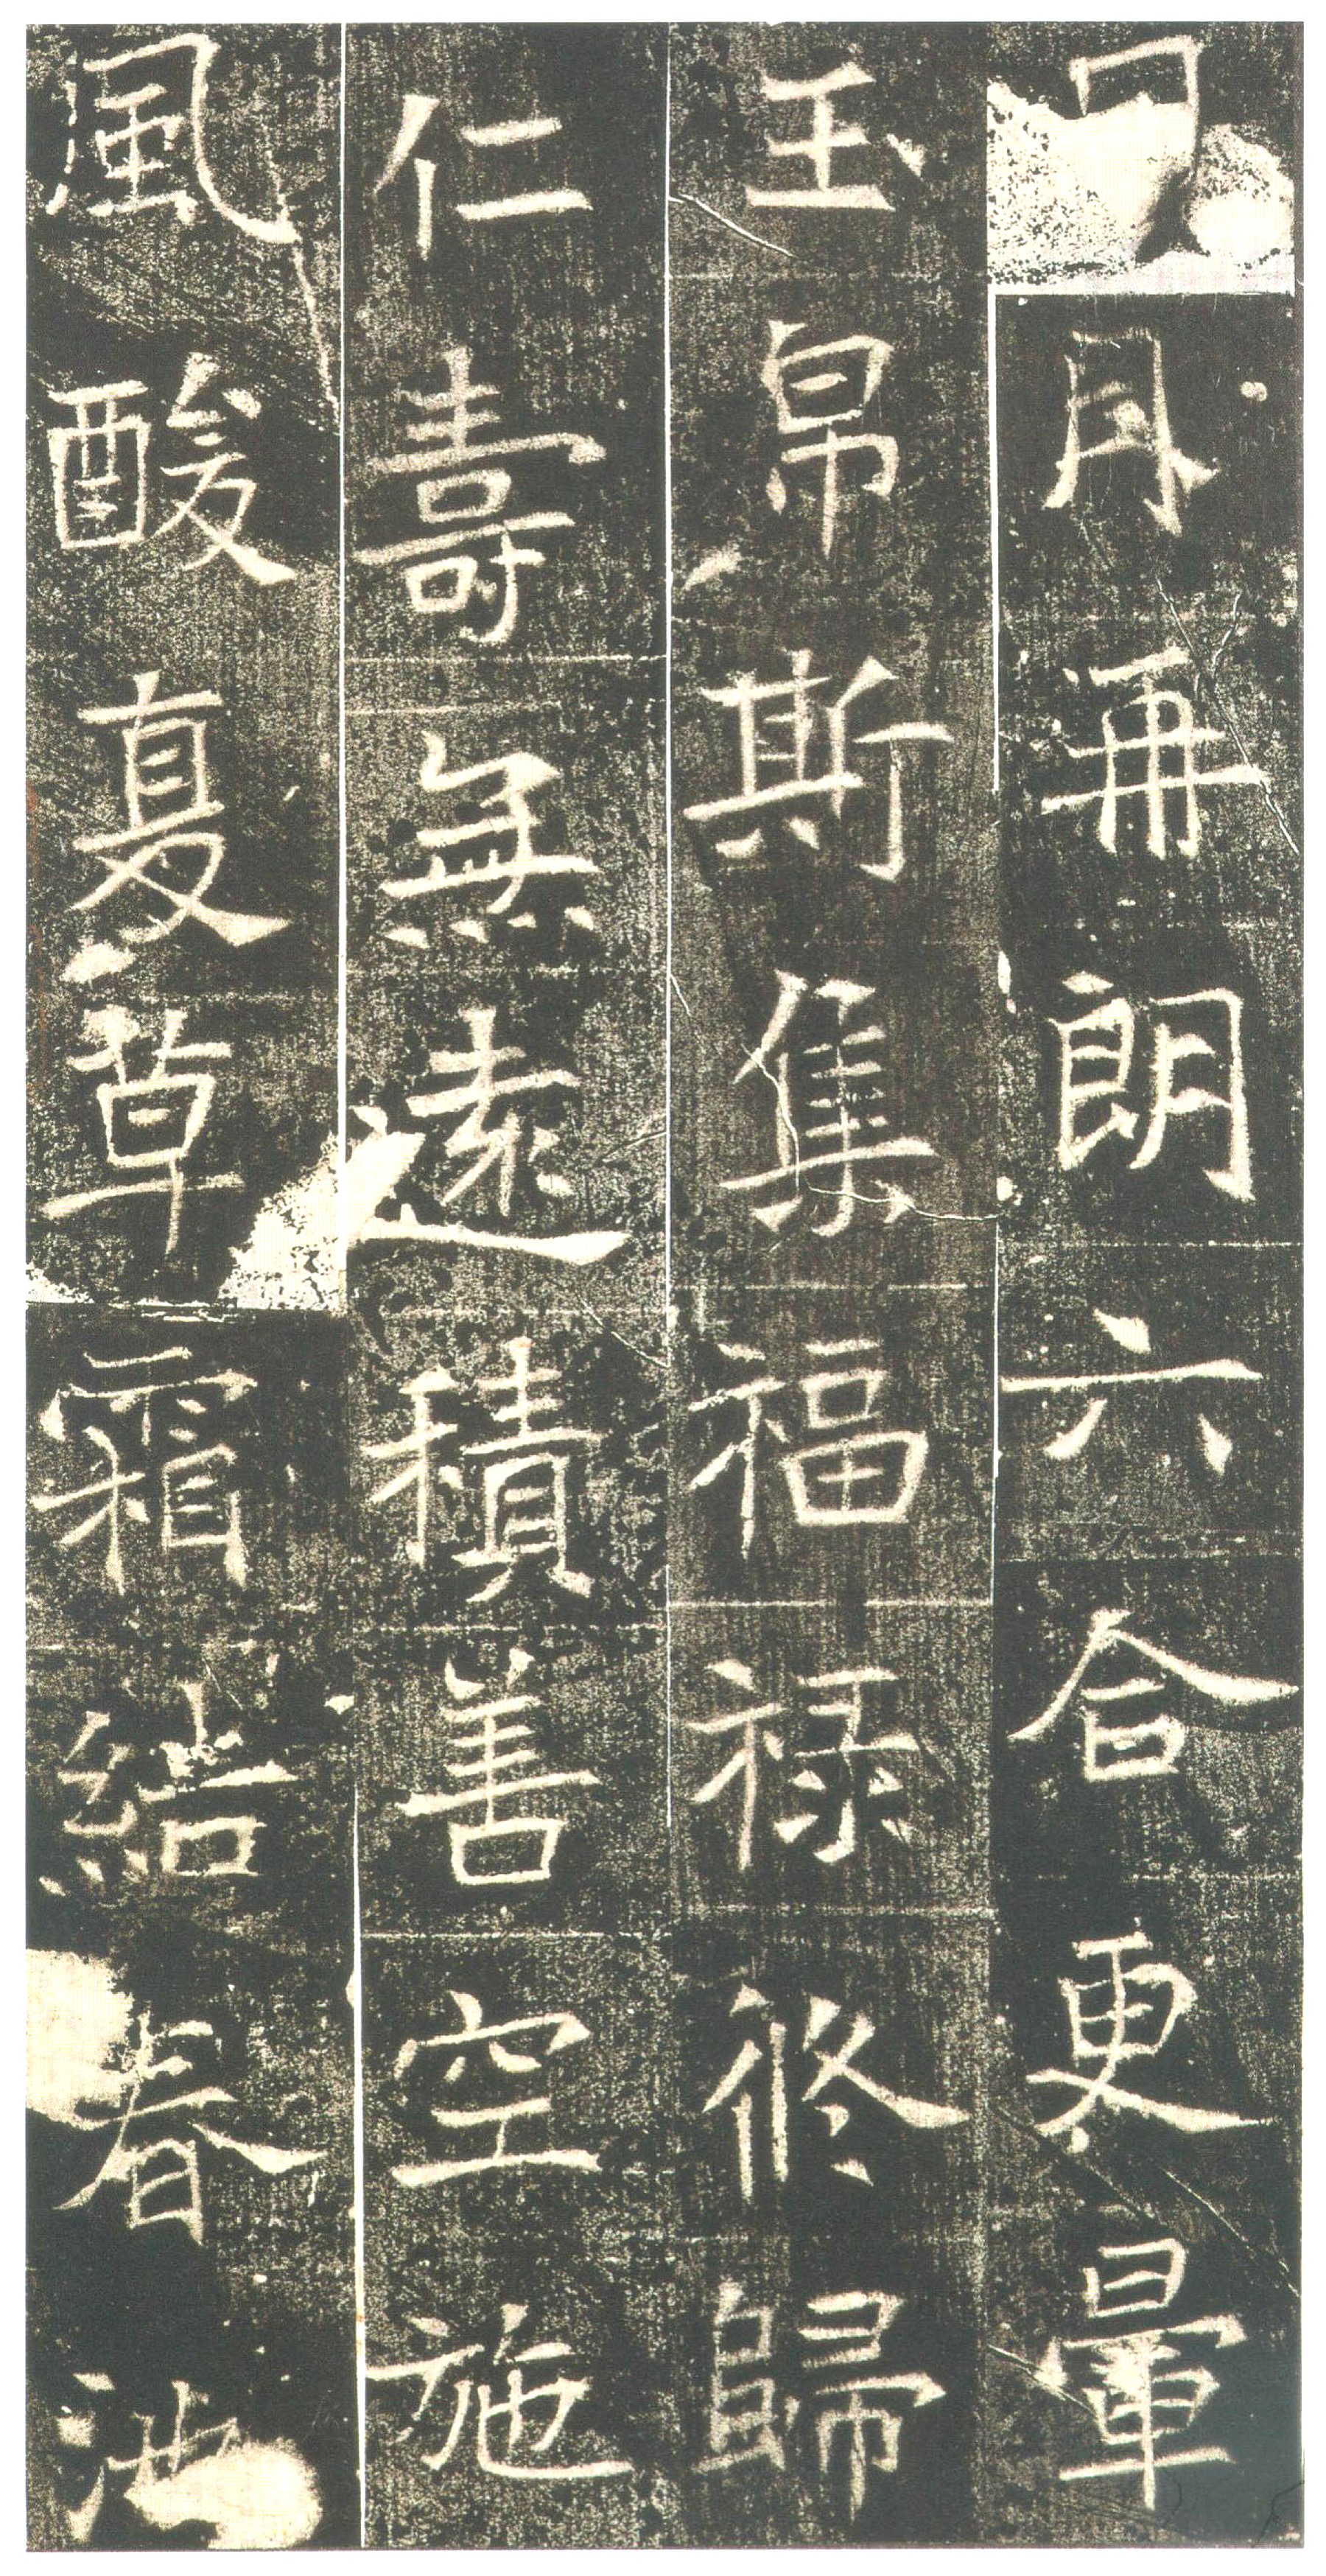 月再朗六合更暈
玉帛斯集福祿修歸
仁壽無遠積善空施
風酸夏草霜結春池